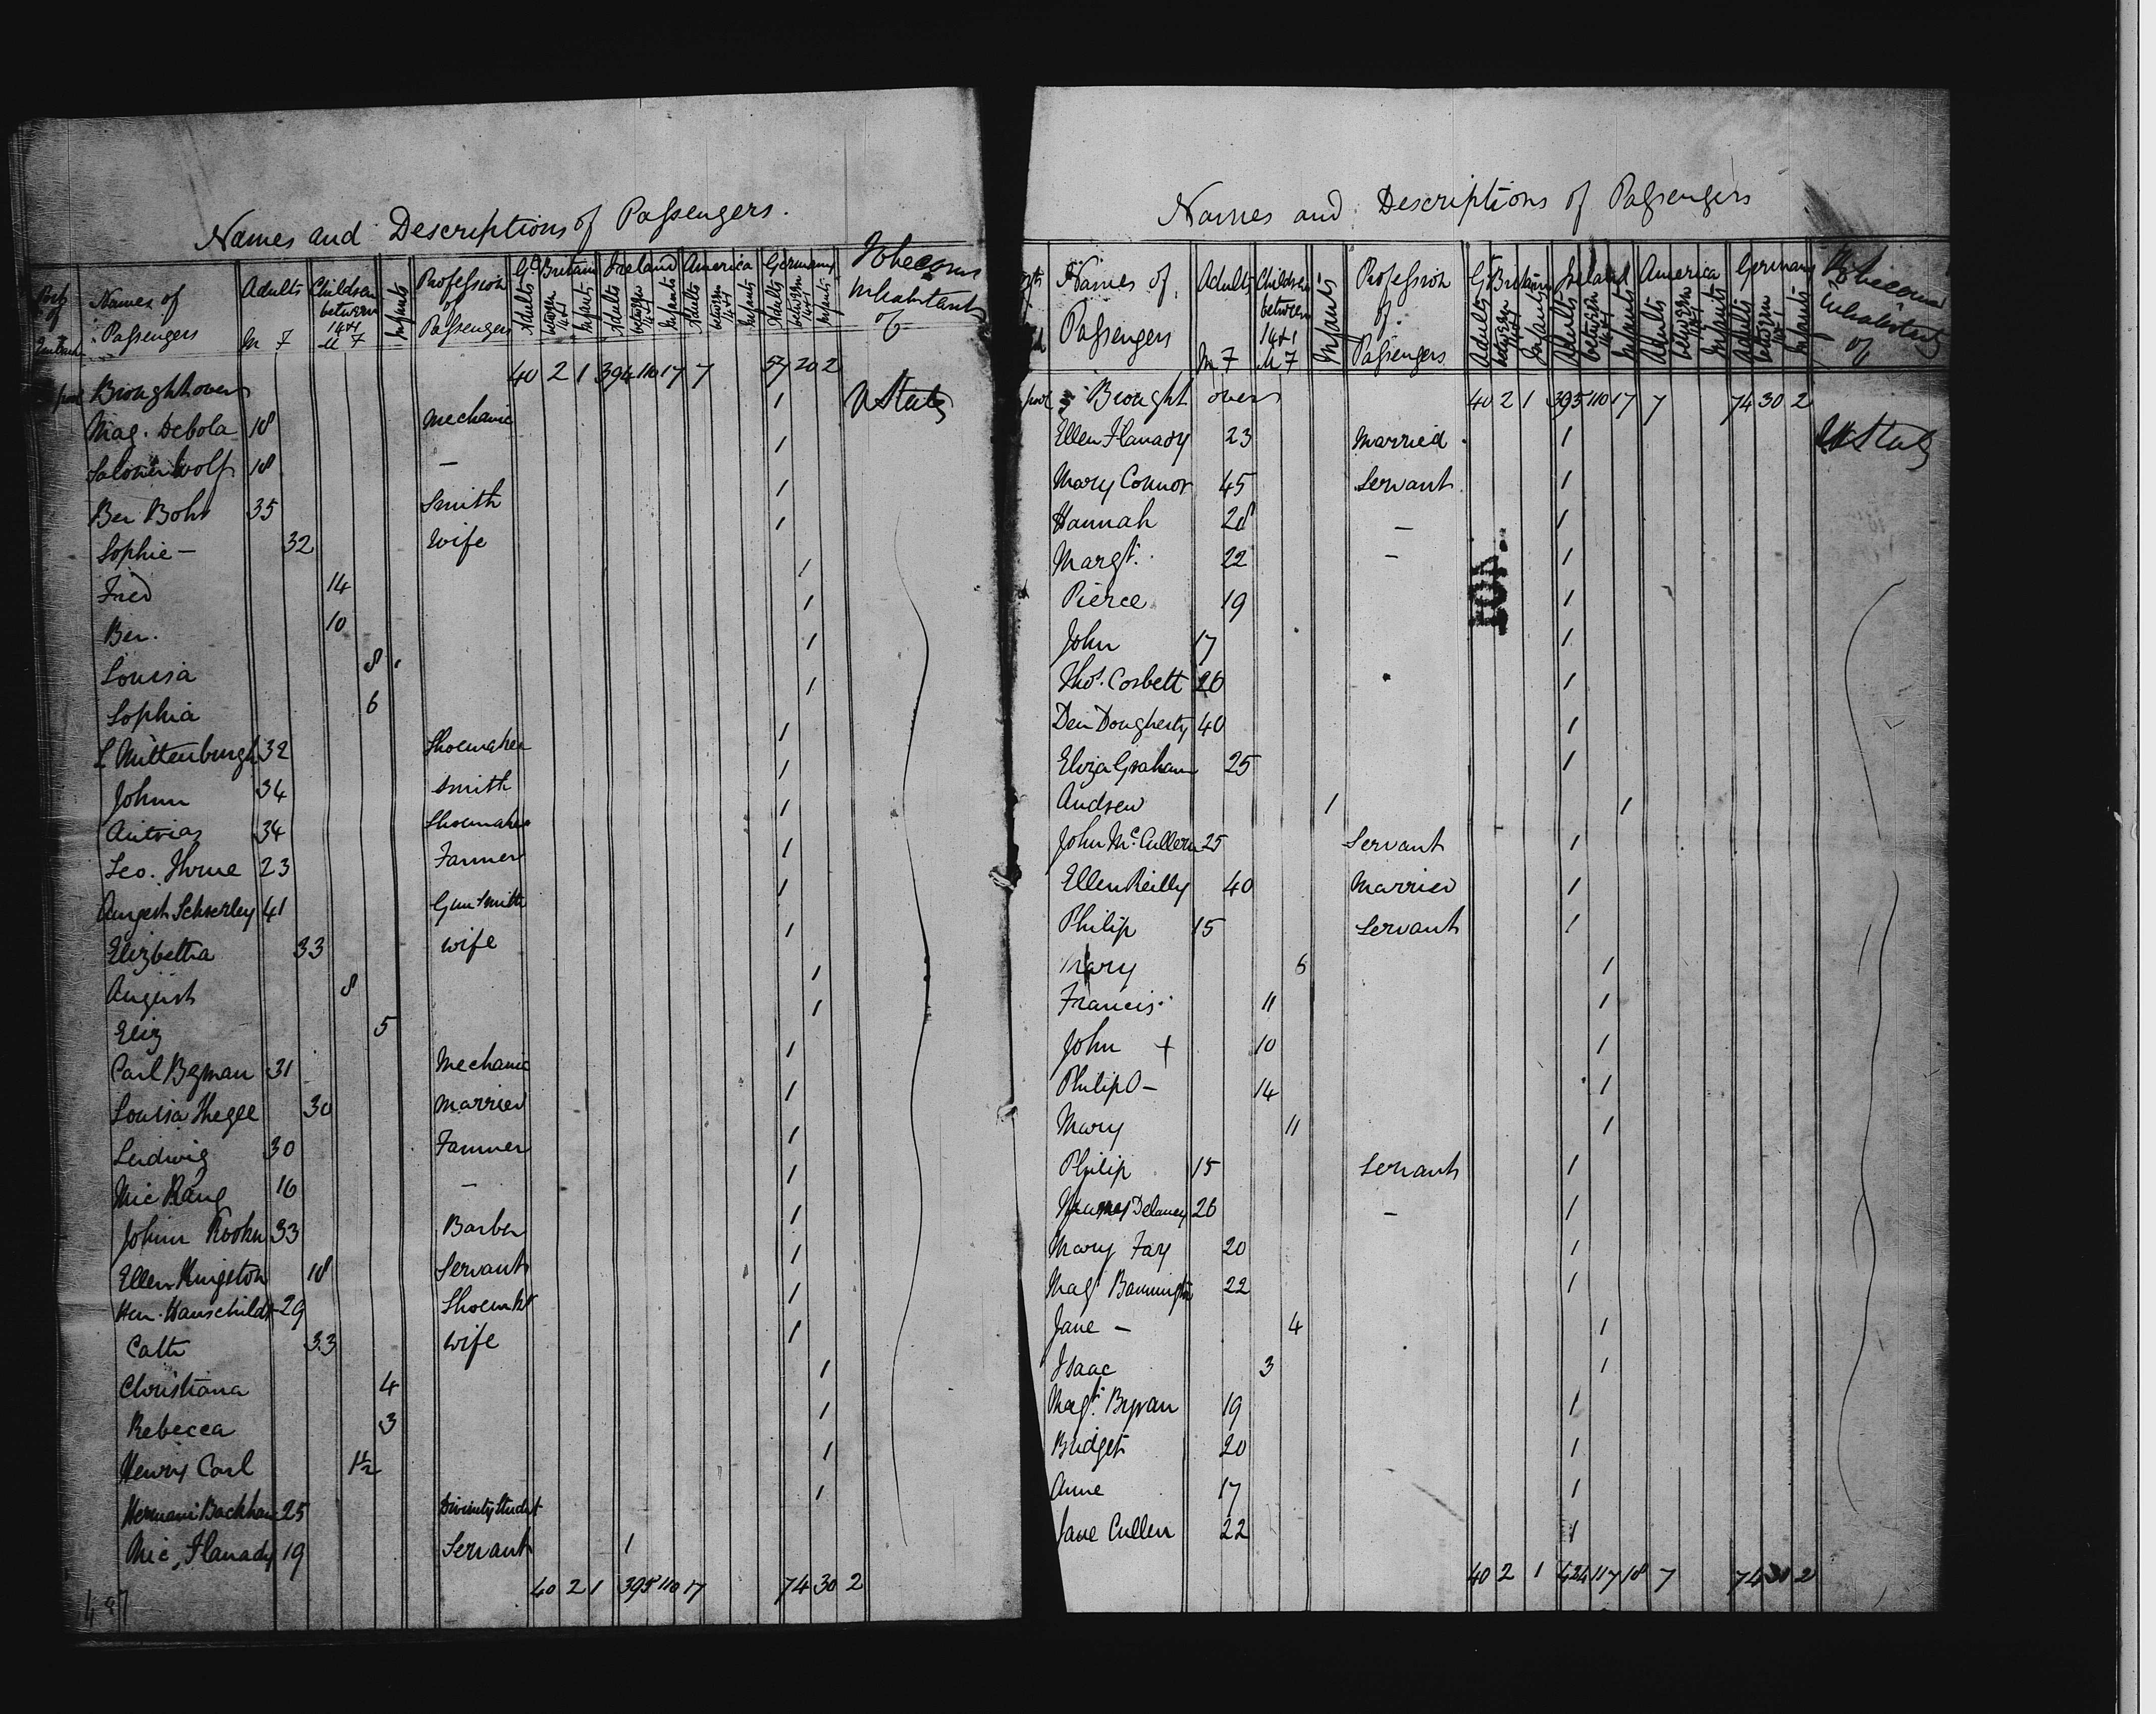 Names and Descriptions of Passengers.
Port of Names of Passengers Adults M F Children between 14 & 1 M F Infants Profession of Passengers Gt Britain Adults between 14+1 Infants Ireland Adults between 14+1 Infants America Adults between 14+1 Infants Germany Adults between 14+1 Infants To become Inhabitants of
pool Brought over 40 2 1 394 110 17 7 57 20 2
Mag. Debola 18 Mechanic 1 U States
Wolf 18 — 1
Ber Bohr 35 Smith 1
Sophie — 32 Wife 1
Fred 14 1
Ber. 10 1
Louisa 8 1
Sophia 6 1
L Mittenburgh 32 Shoemaker 1
Johnn 34 Smith 1
34 Shoemaker 1
Leo. Thrue 23 Farmer 1
August Schserley 41 Gun Smith 1
Elizbetha 33 Wife 1
August 8 1
Eliz 5 1
Carl Bezman 31 Mechanic 1
Louisa Thegee 30 Married 1
Ludwig 30 Farmer 1
Mic Rang 16 — 1
Johnn Koohn 33 Barber 1
Ellen Kingston 18 Servant 1
Hen. Hanschildt 29 Shoemkr 1
Cath 33 Wife 1
Christiana 4 1
Rebecca 3 1
Henry Carl 1½ 1
Hermann Backhau 25 Divinity Student 1
Mic, Flanady 19 Servant 1
40 2 1 395 110 17 74 30 2
Names and Descriptions of Passengers
Names of Passengers Adults M F Children between 14+1 M F Infants Profession of Passengers Gt Britain Adults between 14+1 Infants Ireland Adults between 14+1 Infants America Adults between 14+1 Infants Germany Adults between 14+1 Infants To become Inhabitants of
pool Brought over 40 2 1 395 110 17 7 74 30 2
Ellen Flanady 23 Married 1 U States
Mary Connor 45 Servant 1
Hannah 28 — 1
Margt. 22 — 1
Pierce 19 1
John 17 1
Thos. Corbett 20 1
Den Dougherty 40 1
Eliza Graham 25 1
Andrew 1 1
John McCullen 25 Servant 1
Ellen Reilly 40 Married 1
Philip 15 Servant 1
Mary 6 1
Francis 11 1
John + 10 1
Philip O — 14 1
Mary 11 1
Philip 15 Servant 1
Delaney 26 — 1
Mary Fay 20 1
Magt Bannington 22 1
Jane — 4 1
Isaac 3 1
Magt. Bryan 19 1
Bridget 20 1
Anne 17 1
Jane Cullen 22 1
40 2 1 424 117 18 7 74 30 2